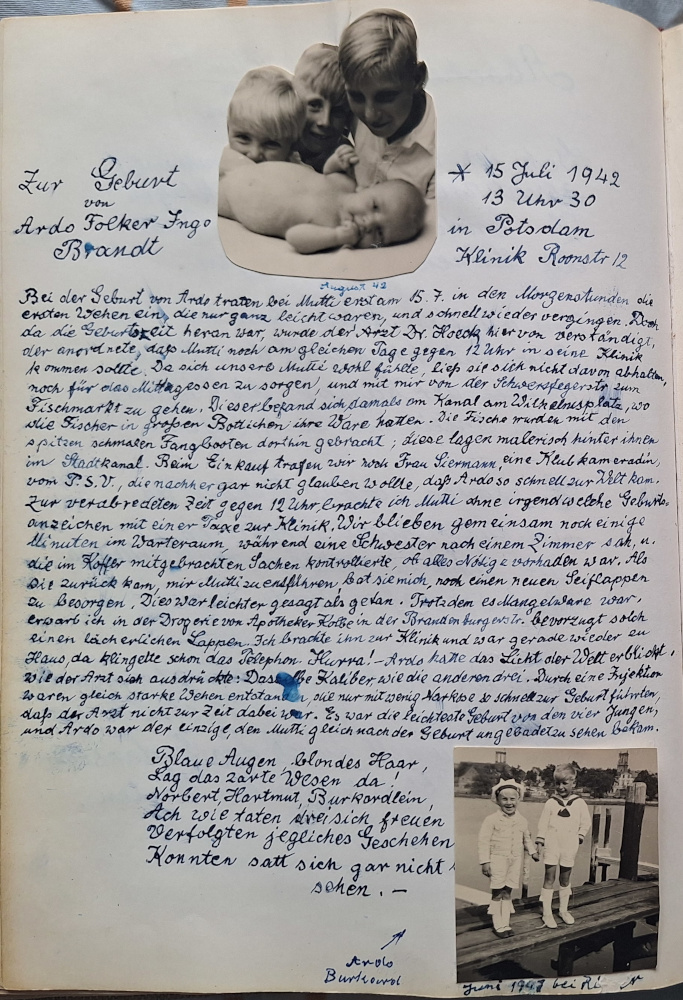 Zur Geburt
von
Ardo Folker Ingo
Brandt
* 15 Juli 1942
13 Uhr 30
in Potsdam
Klinik Roonstr 12
August 42
Bei der Geburt von Ardo traten bei Mutti erst am 15.7. in den Morgenstunden die
ersten Wehen ein, die nur ganz leicht waren, und schnell wieder vergingen. Doch
da die Geburtszeit heran war, wurde der Arzt Dr. Hoeck hiervon verständigt,
der anordnete, daß Mutti noch am gleichen Tage gegen 12 Uhr in seine Klinik
kommen sollte. Da sich unsere Mutti wohl fühlte, ließ sie sich nicht davon abhalten,
noch für das Mittagessen zu sorgen, und mit mir von der Schwerdfegerstr zum
Fischmarkt zu gehen. Dieser befand sich damals am Kanal am Wilhelmsplatz, wo
die Fischer in großen Bottichen ihre Ware hatten. Die Fische wurden mit den
spitzen schmalen Fangbooten dorthin gebracht; diese lagen malerisch hinter ihnen
im Stadtkanal. Beim Einkauf trafen wir noch Frau Siermann, eine Klubkameradin,
vom P.S.V., die nachher gar nicht glauben wollte, daß Ardo so schnell zur Welt kam.
Zur verabredeten Zeit gegen 12 Uhr, brachte ich Mutti ohne irgendwelche Geburts-
anzeichen mit einer Taxe zur Klinik. Wir blieben gemeinsam noch einige
Minuten im Warteraum, während eine Schwester nach einem Zimmer sah, u.
die im Koffer mitgebrachten Sachen kontrollierte, ob alles Nötige vorhaden war. Als
sie zurück kam, mir Mutti zu entführen, bat sie mich, noch einen neuen Seiflappen
zu besorgen. Dies war leichter gesagt als getan. Trotzdem es Mangelware war,
erwarb ich in der Drogerie von Apotheker Kolbe in der Brandenburgerstr. bevorzugt solch
einen lächerlichen Lappen. Ich brachte ihn zur Klinik und war gerade wieder zu
Haus, da klingelte schon das Telephon. Hurra! - Ardo hatte das Licht der Welt erblickt,
wie der Arzt sich ausdrückte: Dasselbe Kaliber wie die anderen drei. Durch eine Injektion
waren gleich starke Wehen entstanden, die nur mit wenig Narkose so schnell zur Geburt führten,
daß der Arzt nicht zur Zeit dabei war. Es war die leichteste Geburt von den vier Jungen,
und Ardo war der einzige, den Mutti gleich nach der Geburt ungebadet zu sehen bekam.
Blaue Augen, blondes Haar,
Lag das zarte Wesen da!
Norbert, Hartmut, Burkardlein,
Ach wie taten drei sich freuen
Verfolgten jegliches Geschehen
Konnten satt sich gar nicht
sehen. –
Ardo
Burkard
Juni 1947 bei